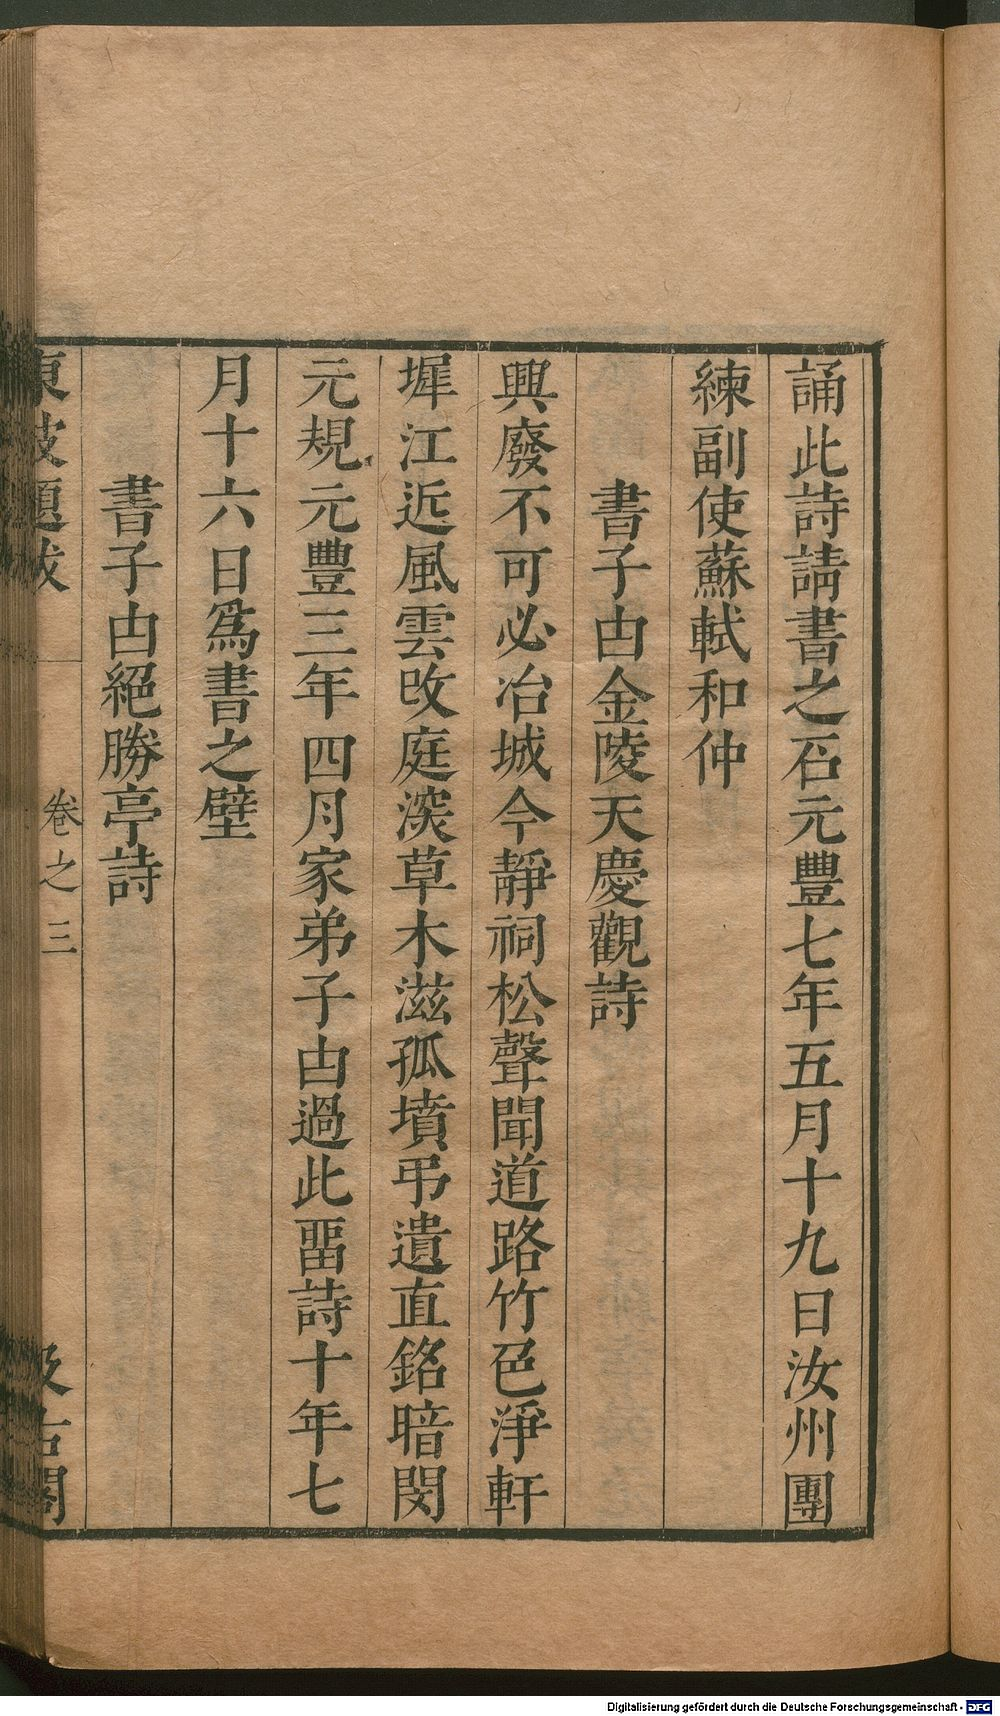 誦此詩請書之石元豐七年五月十九日汝州團
練副使蘇軾和仲
書子由金陵天慶觀詩
興廢不可必冶城今靜祠松聲聞道路竹色淨軒
墀江近風雲改庭深草木滋孤墳弔遺直銘暗閔
元規元豐三年四月家弟子由過此畱詩十年七
月十六日爲書之壁
書子由絕勝亭詩
東坡題跋
卷之三
汲古閣
Digitalisierung gefördert durch die Deutsche Forschungsgemeinschaft - DFG